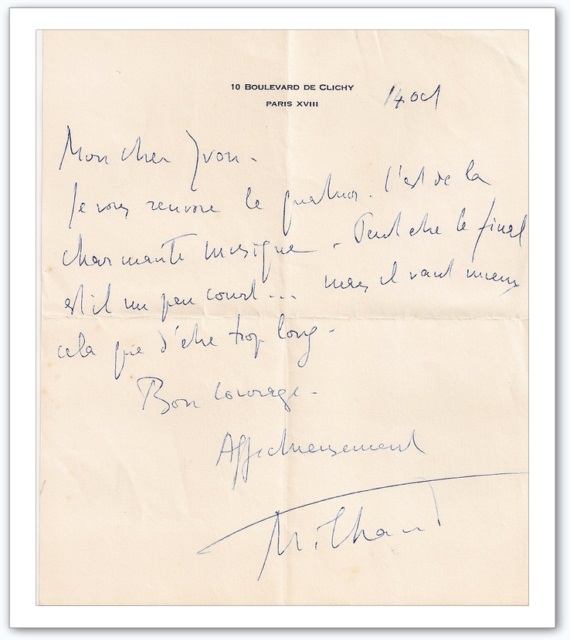 10 BOULEVARD DE CLICHY
PARIS XVIII
14 oct
Mon cher Yvon -
Je vous renvoie le quatuor. C'est de la
charmante musique - Peut être le final
est il un peu court ... mais il vaut mieux
cela que d'être trop long -
Bon courage -
Affectueusement
Milhaud